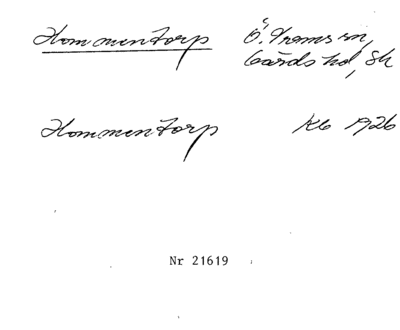 Hommentorp Ö. Vrams sn,
Gärds hd, Sk
Hommentorp Kb 1926
Nr 21619